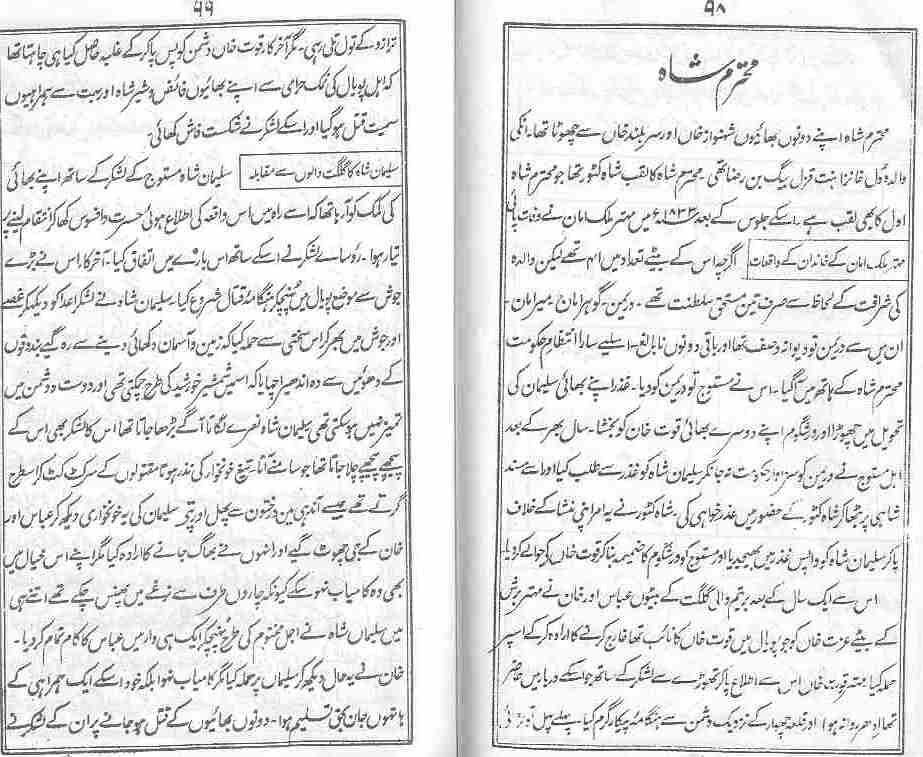 ۹۸
محترم شاہ
محترم شاہ اپنے دونوں بھائیوں شہنواز خاں اور سربلند خاں سے چھوٹا تھا۔ انکی
والدہ ول خانزا بنت قزل بیگ بن رضا تھی۔ محترم شاہ کا لقب شاہ کٹور تھا جو محترم شاہ
اول کا بھی لقب ہے۔ اسکے جلوس کے بعد ۱۸۳۳ء میں مہتر ملک امان نے وفات پائی
مہتر ملک امان کے خاندان کے واقعات
اگرچہ اس کے بیٹے تعداد میں تھے لیکن والدہ
کی شرافت کے لحاظ سے صرف تین مستحق سلطنت تھے۔ دریمن۔ گوہر امان۔ میر امان۔
ان میں سے دریمن تو دیوانہ وصف تھا اور باقی دونوں نابالغ۔ اسلیے سارا انتظام حکومت
محترم شاہ کے ہاتھ میں آگیا۔ اس نے مستوج تو دریمن کو دیا۔ غذر اپنے بھائی سلیمان کی
تحویل میں چھوڑا اور ورشگوم اپنے دوسرے بھائی قوت خان کو بخشا۔ سال بھر کے بعد
اہل مستوج نے دریمن کو سزاوار حکومت نہ جانکر سلیمان شاہ کو غذر سے طلب کیا اور اسے مسند
شاہی پر بٹھا کر شاہ کٹور کے حضور میں عذر خواہی کی۔ شاہ کٹور نے یہ امر اپنی منشا کے خلاف
پا کر سلیمان شاہ کو واپس غذر میں بھیجدیا اور مستوج کو ورشگوم کا ضمیمہ بنا کر قوت خاں کے حوالے کر دیا۔
اس سے ایک سال کے بعد بر تیم والی گلگت کے بیٹوں عباس اور خان نے مہتر برش
کے بیٹے عزت خاں کو جو پویال میں قوت خاں کا نائب تھا خارج کرنے کا ارادہ کر کے اسپر
حملہ کیا مہتر قوت خاں اس سے اطلاع پا کر تھوڑے سے لشکر کے ساتھ جو اسکے دربار میں حاضر
تھا ادھر روانہ ہوا اور قلعہ چہار کے نزدیک دشمن سے ہنگامہ پیکار گرم کیا۔ پہلے پہل تو
۹۹
ترازو کے تول تلی رہی۔ مگر آخر کار قوت خاں دشمن کو پس پا کر کے غلبہ حاصل کیا ہی چاہتا تھا
کہ اہل پویال کی نمک حرامی سے اپنے بھائیوں فائض و شیر شاہ اور بہت سے ہمراہیوں
سمیت قتل ہو گیا اور اسکے لشکر نے شکست فاش کھائی۔
سلیمان شاہ کا گلگت والوں سے مقابلہ
سلیمان شاہ مستوج کے لشکر کے ساتھ اپنے بھائی
کی کمک کو آرہا تھا کہ اسے راہ میں اس واقعہ کی اطلاع ہوئی حسرت و افسوس کھا کر انتقام لینے پر
تیار ہوا۔ رؤسائے لشکر نے اسکے ساتھ اس بارے میں اتفاق کیا۔ آخر کار اس نے بڑے
جوش سے موضع پویال میں پہنچ کر ہنگامہ قتال شروع کیا۔ سلیمان شاہ نے لشکر اعدا کو دیکھ کر غصے
اور جوش میں بھر کر اس سختی سے حملہ کیا کہ زمین و آسمان دکھائی دینے سے رہ گیے بندوقوں
کے دھوئیں سے وہ اندھیرا چھایا کہ اسمیں شمشیر خورشید کی طرح چمکتی تھی اور دوست و دشمن میں
تمیز نہیں ہو سکتی تھی سلیمان شاہ نعرے لگاتا آگے بڑھا جاتا تھا اس کا لشکر بھی اس کے
پیچھے پیچھے چلا جاتا تھا جو سامنے آتا تیغ خونخوار کی نذر ہوتا مقتولوں کے سر کٹ کٹ کر اسطرح
گرتے تھے جیسے آندھی میں درختوں سے پھل اور پتے سلیمان کی یہ خونخواری دیکھ کر عباس اور
خان کے جی چھوٹ گیے اور انہوں نے بھاگ جانے کا ارادہ کیا مگر اپنے اس خیال میں
بھی وہ کامیاب نہو سکے کیونکہ چاروں طرف سے نرغے میں پھنس چکے تھے اتنے ہی
میں سلیمان شاہ نے اجل مختوم کی طرح پہنچ کر ایک ہی وار میں عباس کا کام تمام کر دیا۔
خان نے یہ حال دیکھ کر سلیمان پر حملہ کیا مگر کامیاب نہوا بلکہ خود اسکے ایک ہمراہی کے
ہاتھوں جان بحق تسلیم ہوا۔ دونوں بھائیوں کے قتل ہو جانے پر ان کے لشکر نے